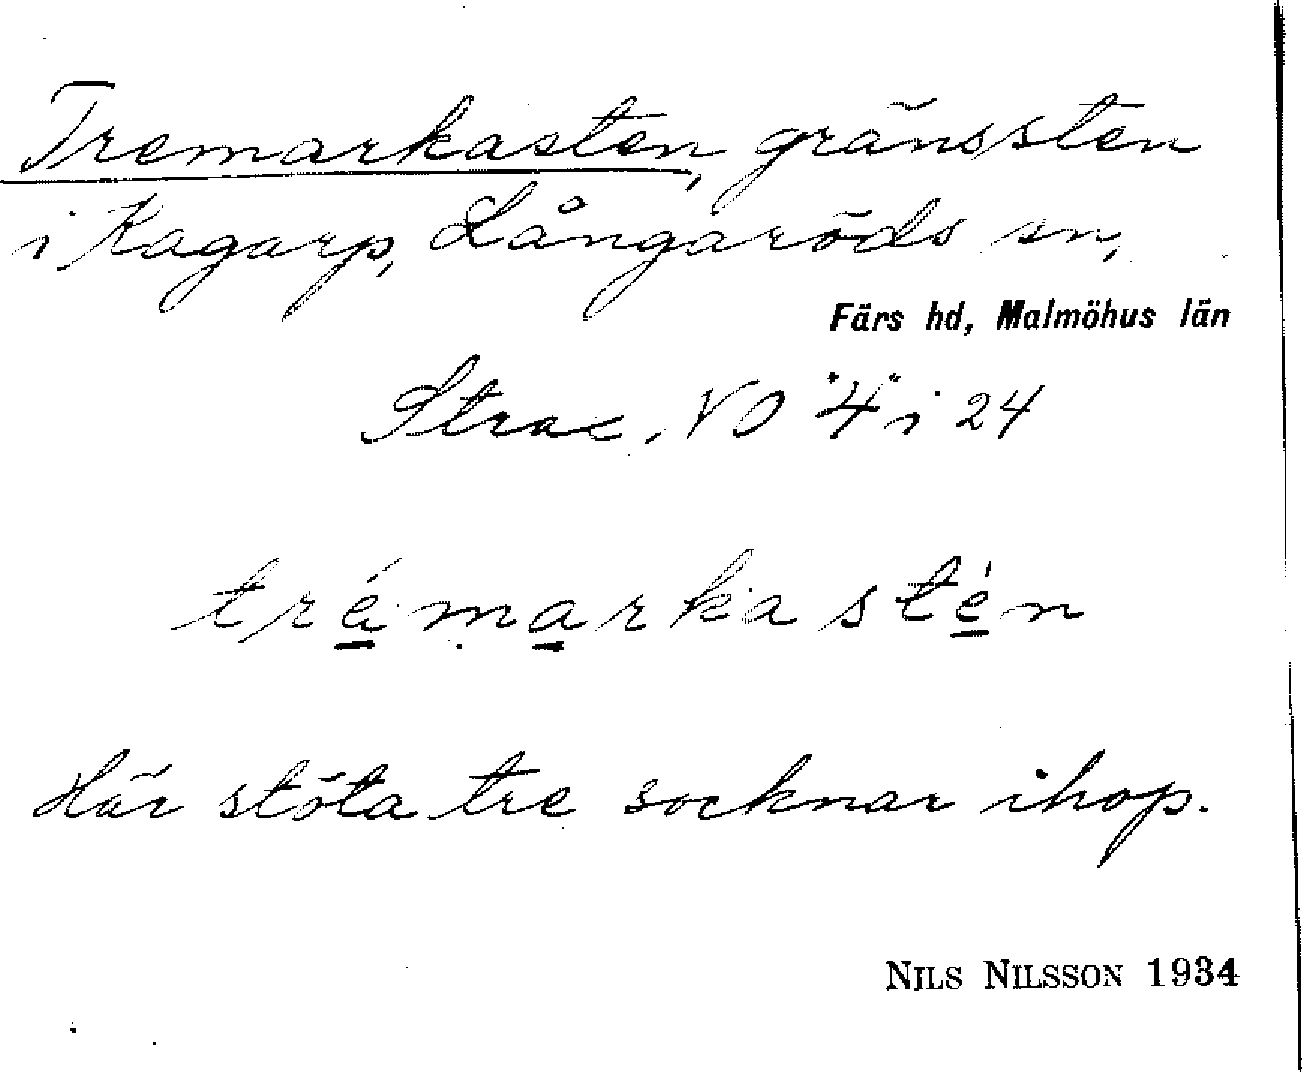 Tremarkasten, gränssten
i Kagarp, Långaröds sn,
Färs hd, Malmöhus län
VO "4" i 24
trémarkastén
Här stöta tre socknar ihop.
NILS NILSSON 1934